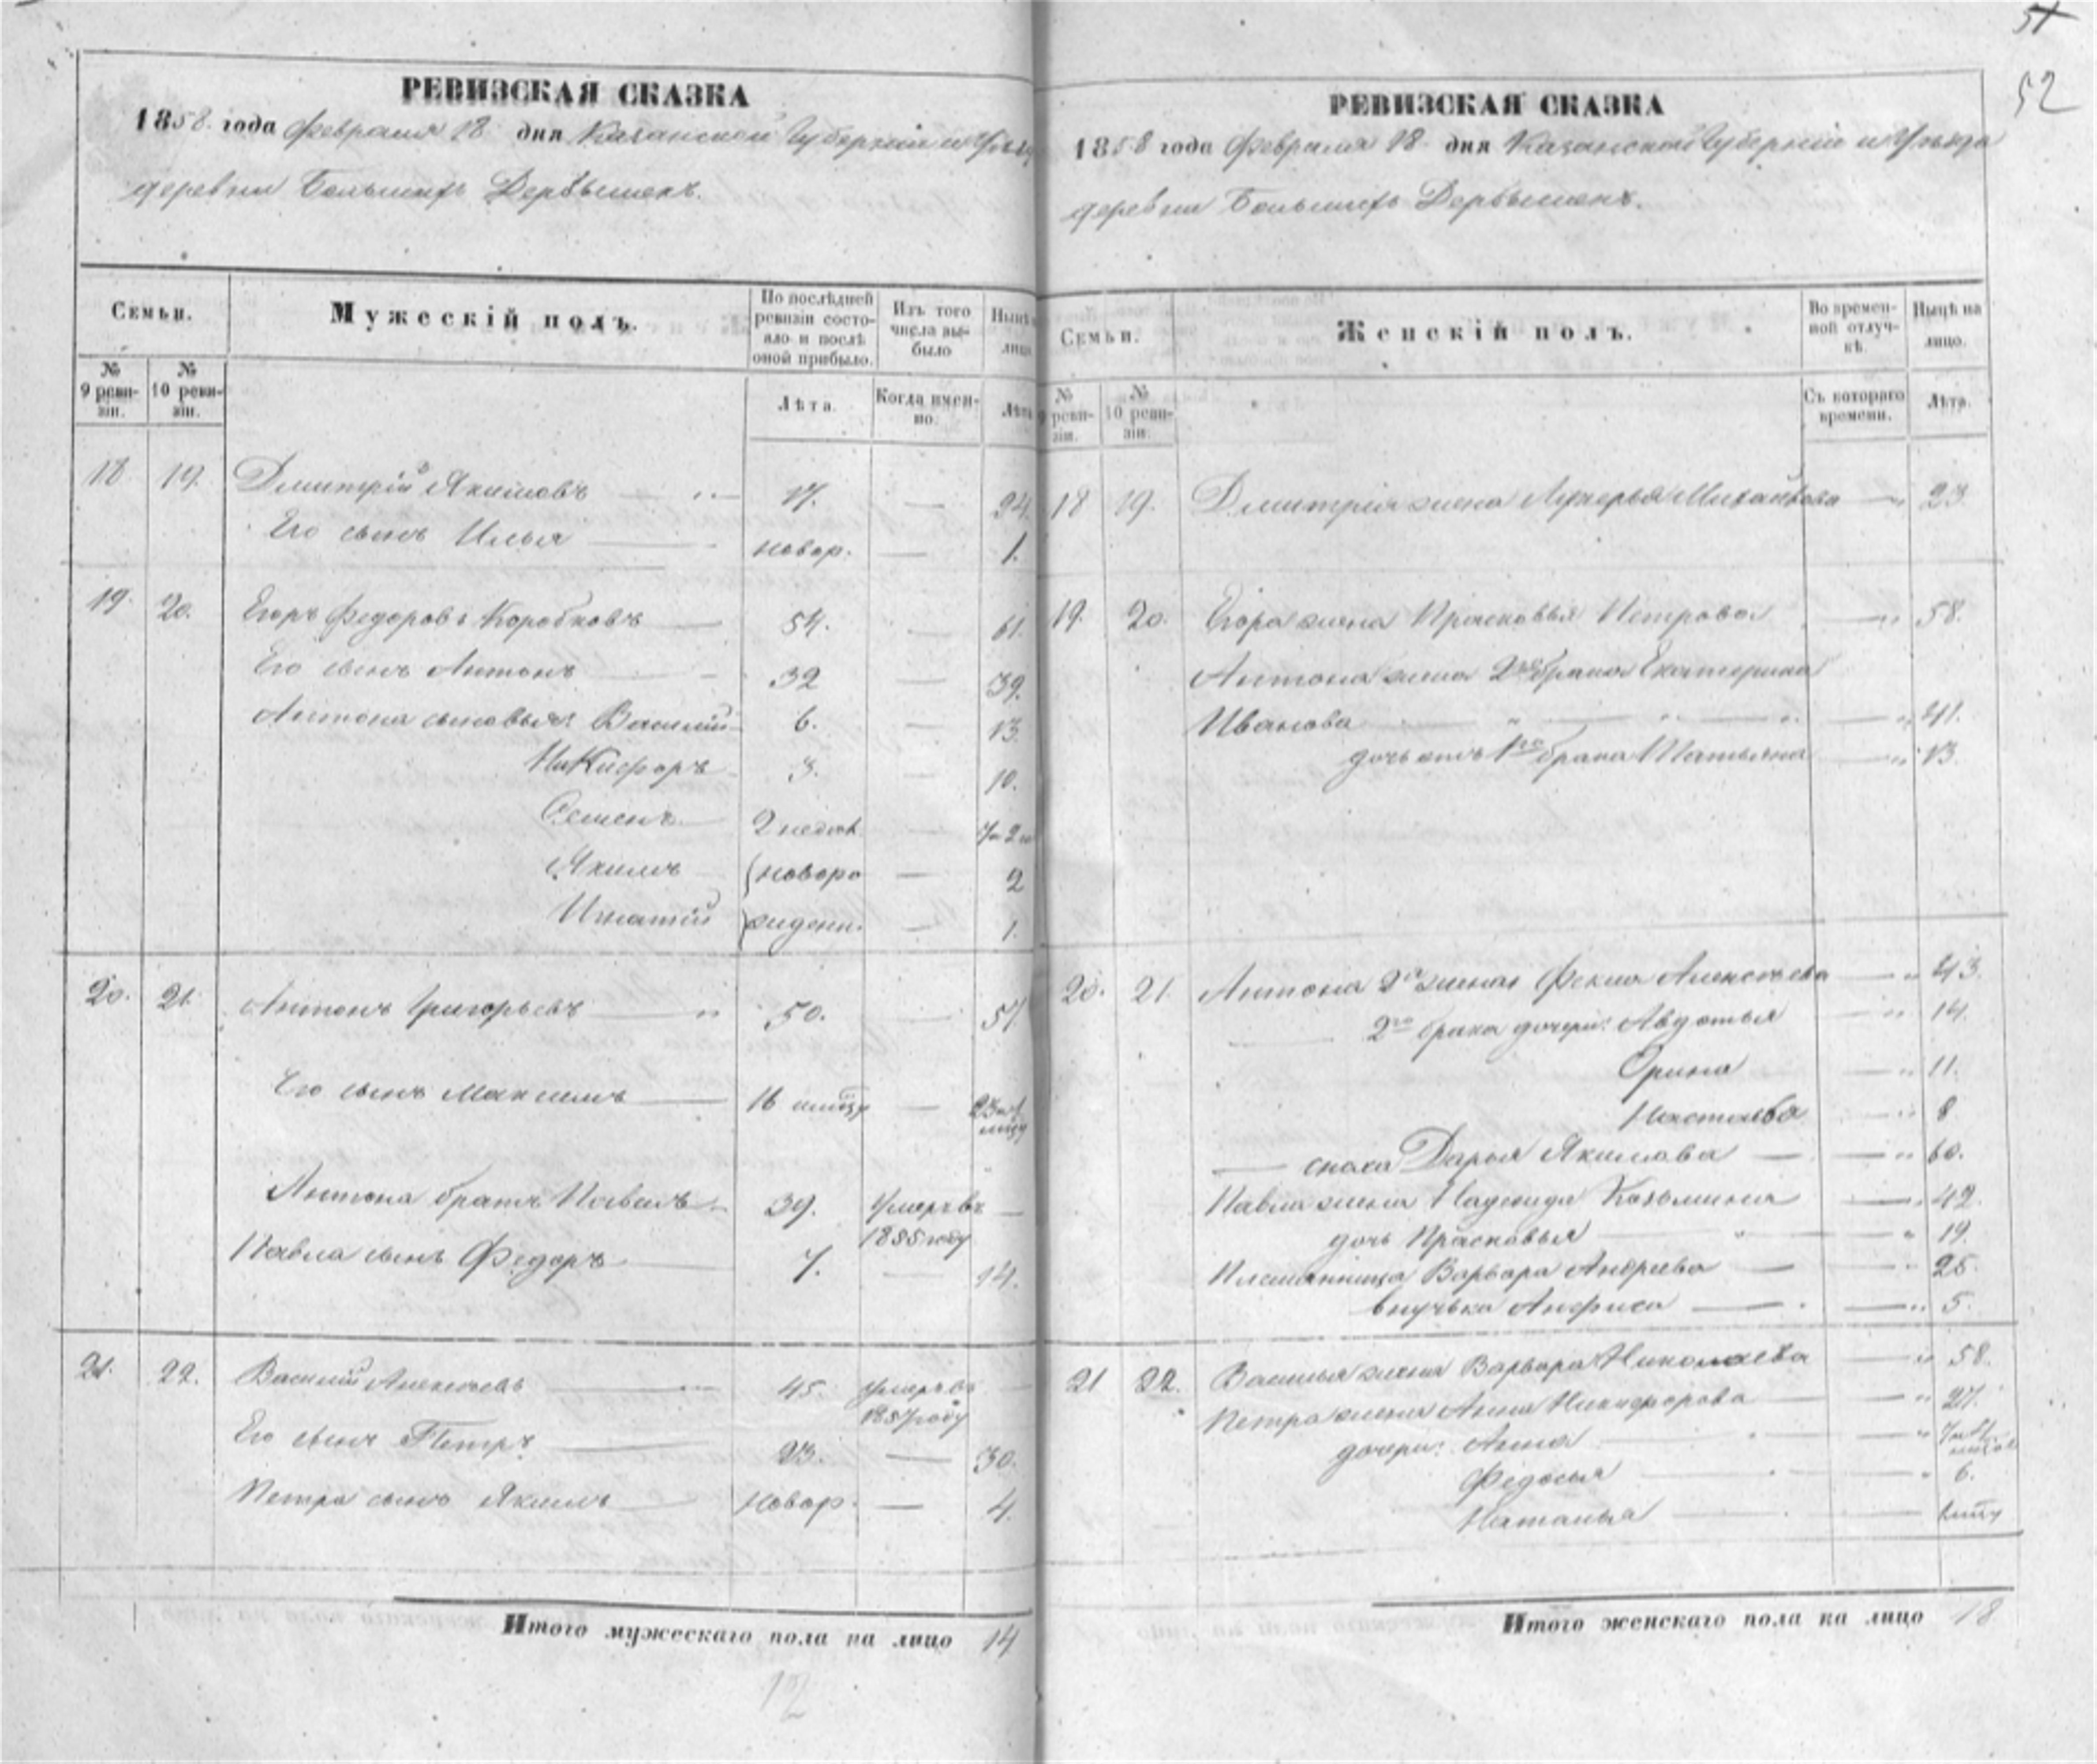 РЕВИЗСКАЯ СКАЗКА
1858. года Февраля 18 дня Казанской Губерніи и Уѣзда
деревни Большихъ Дербышекъ.
Семьи.
Мужескій полъ.
По послѣдней ревизіи состояло и послѣ оной прибыло.
Изъ того числа выбыло
Нынѣ лицо
№ 9 ревизіи.
№ 10 ревизіи.
Лѣта.
Когда именно.
Лѣта
18. 19. Дмитрій Якимовъ 17. — 24.
Его сынъ Илья новор. — 1.
19. 20. Егоръ Федоровъ Коробковъ 54. — 61.
Его сынъ Антонъ 32 — 39.
Антона сыновья: Василий 6. — 13.
Никифоръ 3. — 10.
Семенъ 2 недѣл. —
Якимъ (новоро — 2
Игнатій )жденн. — 1.
20. 21. Антонъ Григорьевъ 50. — 57
Его сынъ Максимъ 16 —
Антона братъ Павелъ 39. Умеръ въ 1855 году —
Павла сынъ Федоръ 7. — 14.
21. 22. Василий Алексѣевъ 45. умеръ въ 1857 году —
Его сынъ Петръ 23. — 30.
Петра сынъ Якимъ новор. — 4.
Итого мужескаго пола на лицо 14
12
51
52
РЕВИЗСКАЯ СКАЗКА
1858 года Февраля 18 дня Казанской Губерніи и Уѣзда
деревни Большихъ Дербышекъ.
Семьи.
Женскій полъ.
Во временной отлучкѣ.
Нынѣ на лицо.
№ ревизіи.
№ 10 ревизіи.
Съ котораго времени.
Лѣта.
18 19. Дмитрія жена Лукерья Михайлова — 23.
19. 20. Егора жена Прасковья Петрова — 58.
Антона жена 2го брака Екатерина
Иванова — 41.
дочь отъ 1го брака Татьяна — 13.
20. 21. Антона 2я жена Фекла Алексѣева — 43.
2го брака дочери: Авдотья — 14.
Орина — 11.
Настасья — 8
— сноха Дарья Якимова — 60.
Павла жена Надежда Козьмина — 42.
дочь Прасковья — 19.
Племянница Варвара Андреева — 25.
внучька Анфиса — 5.
21 22. Василья жена Варвара Николаева — 58.
Петра жена Анна Никифорова — 27.
дочери: Анна —
Федосья — 6.
Наталья —
Итого женскаго пола на лицо 18